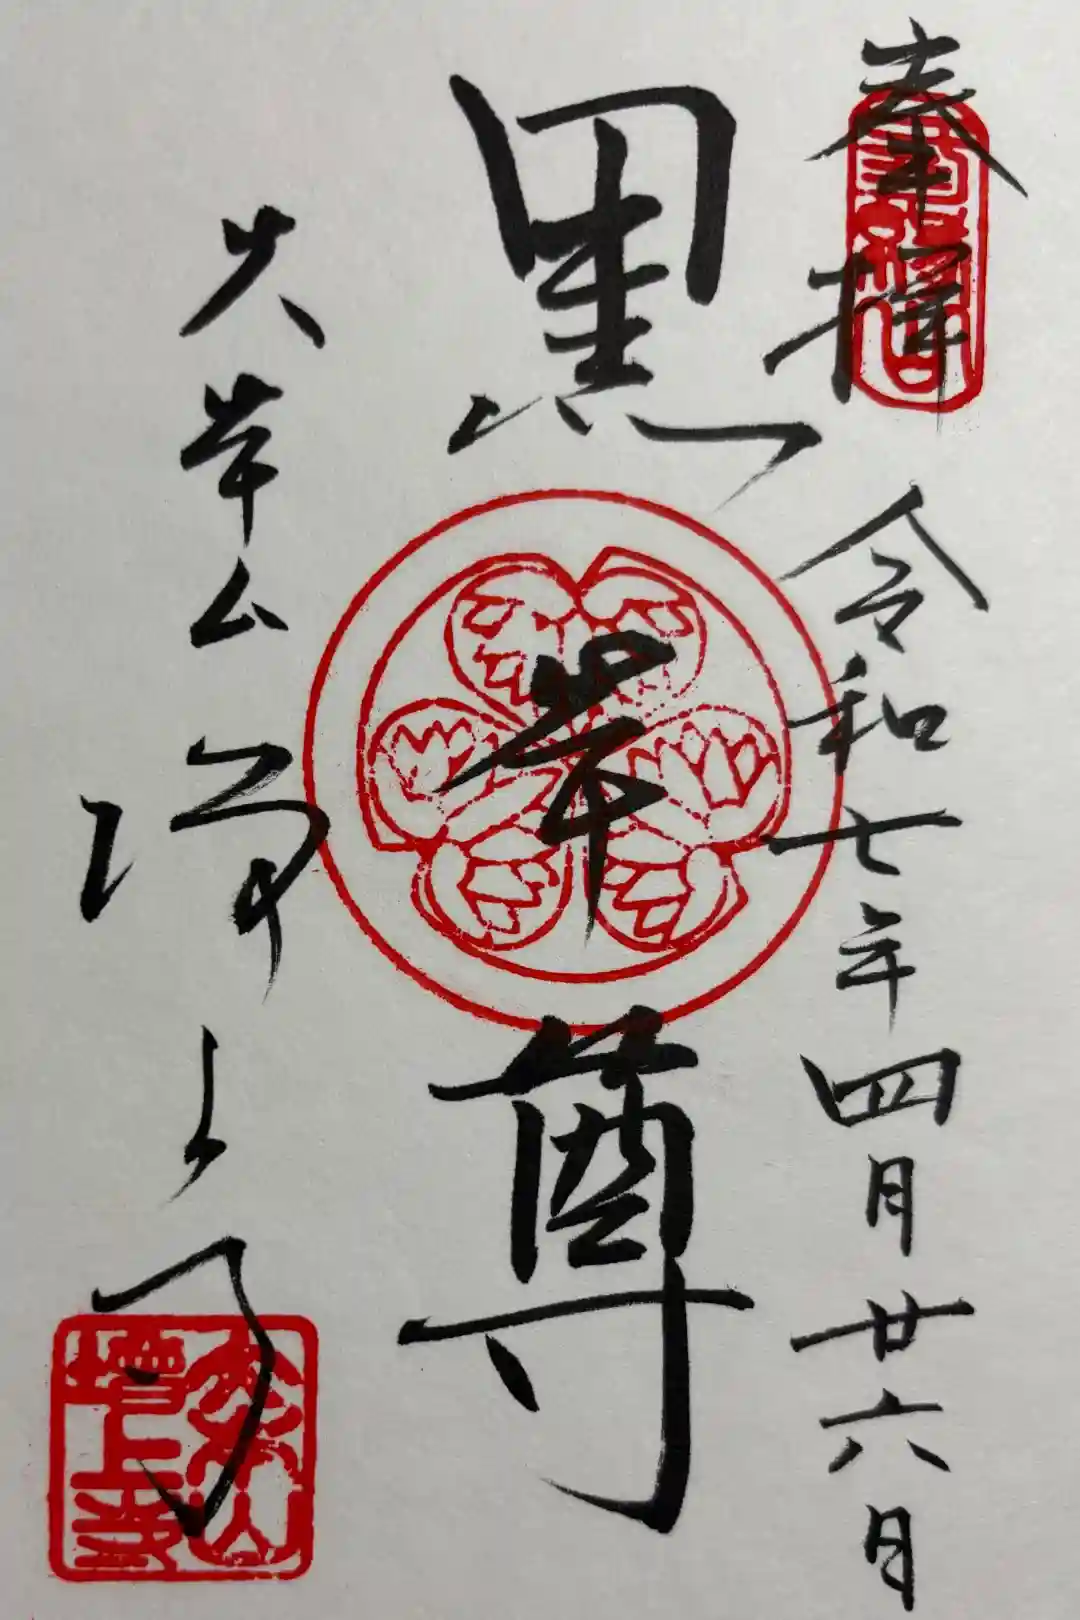 奉拝
令和七年四月廿六日
黒本尊
大本山増上寺
大本山
増上寺